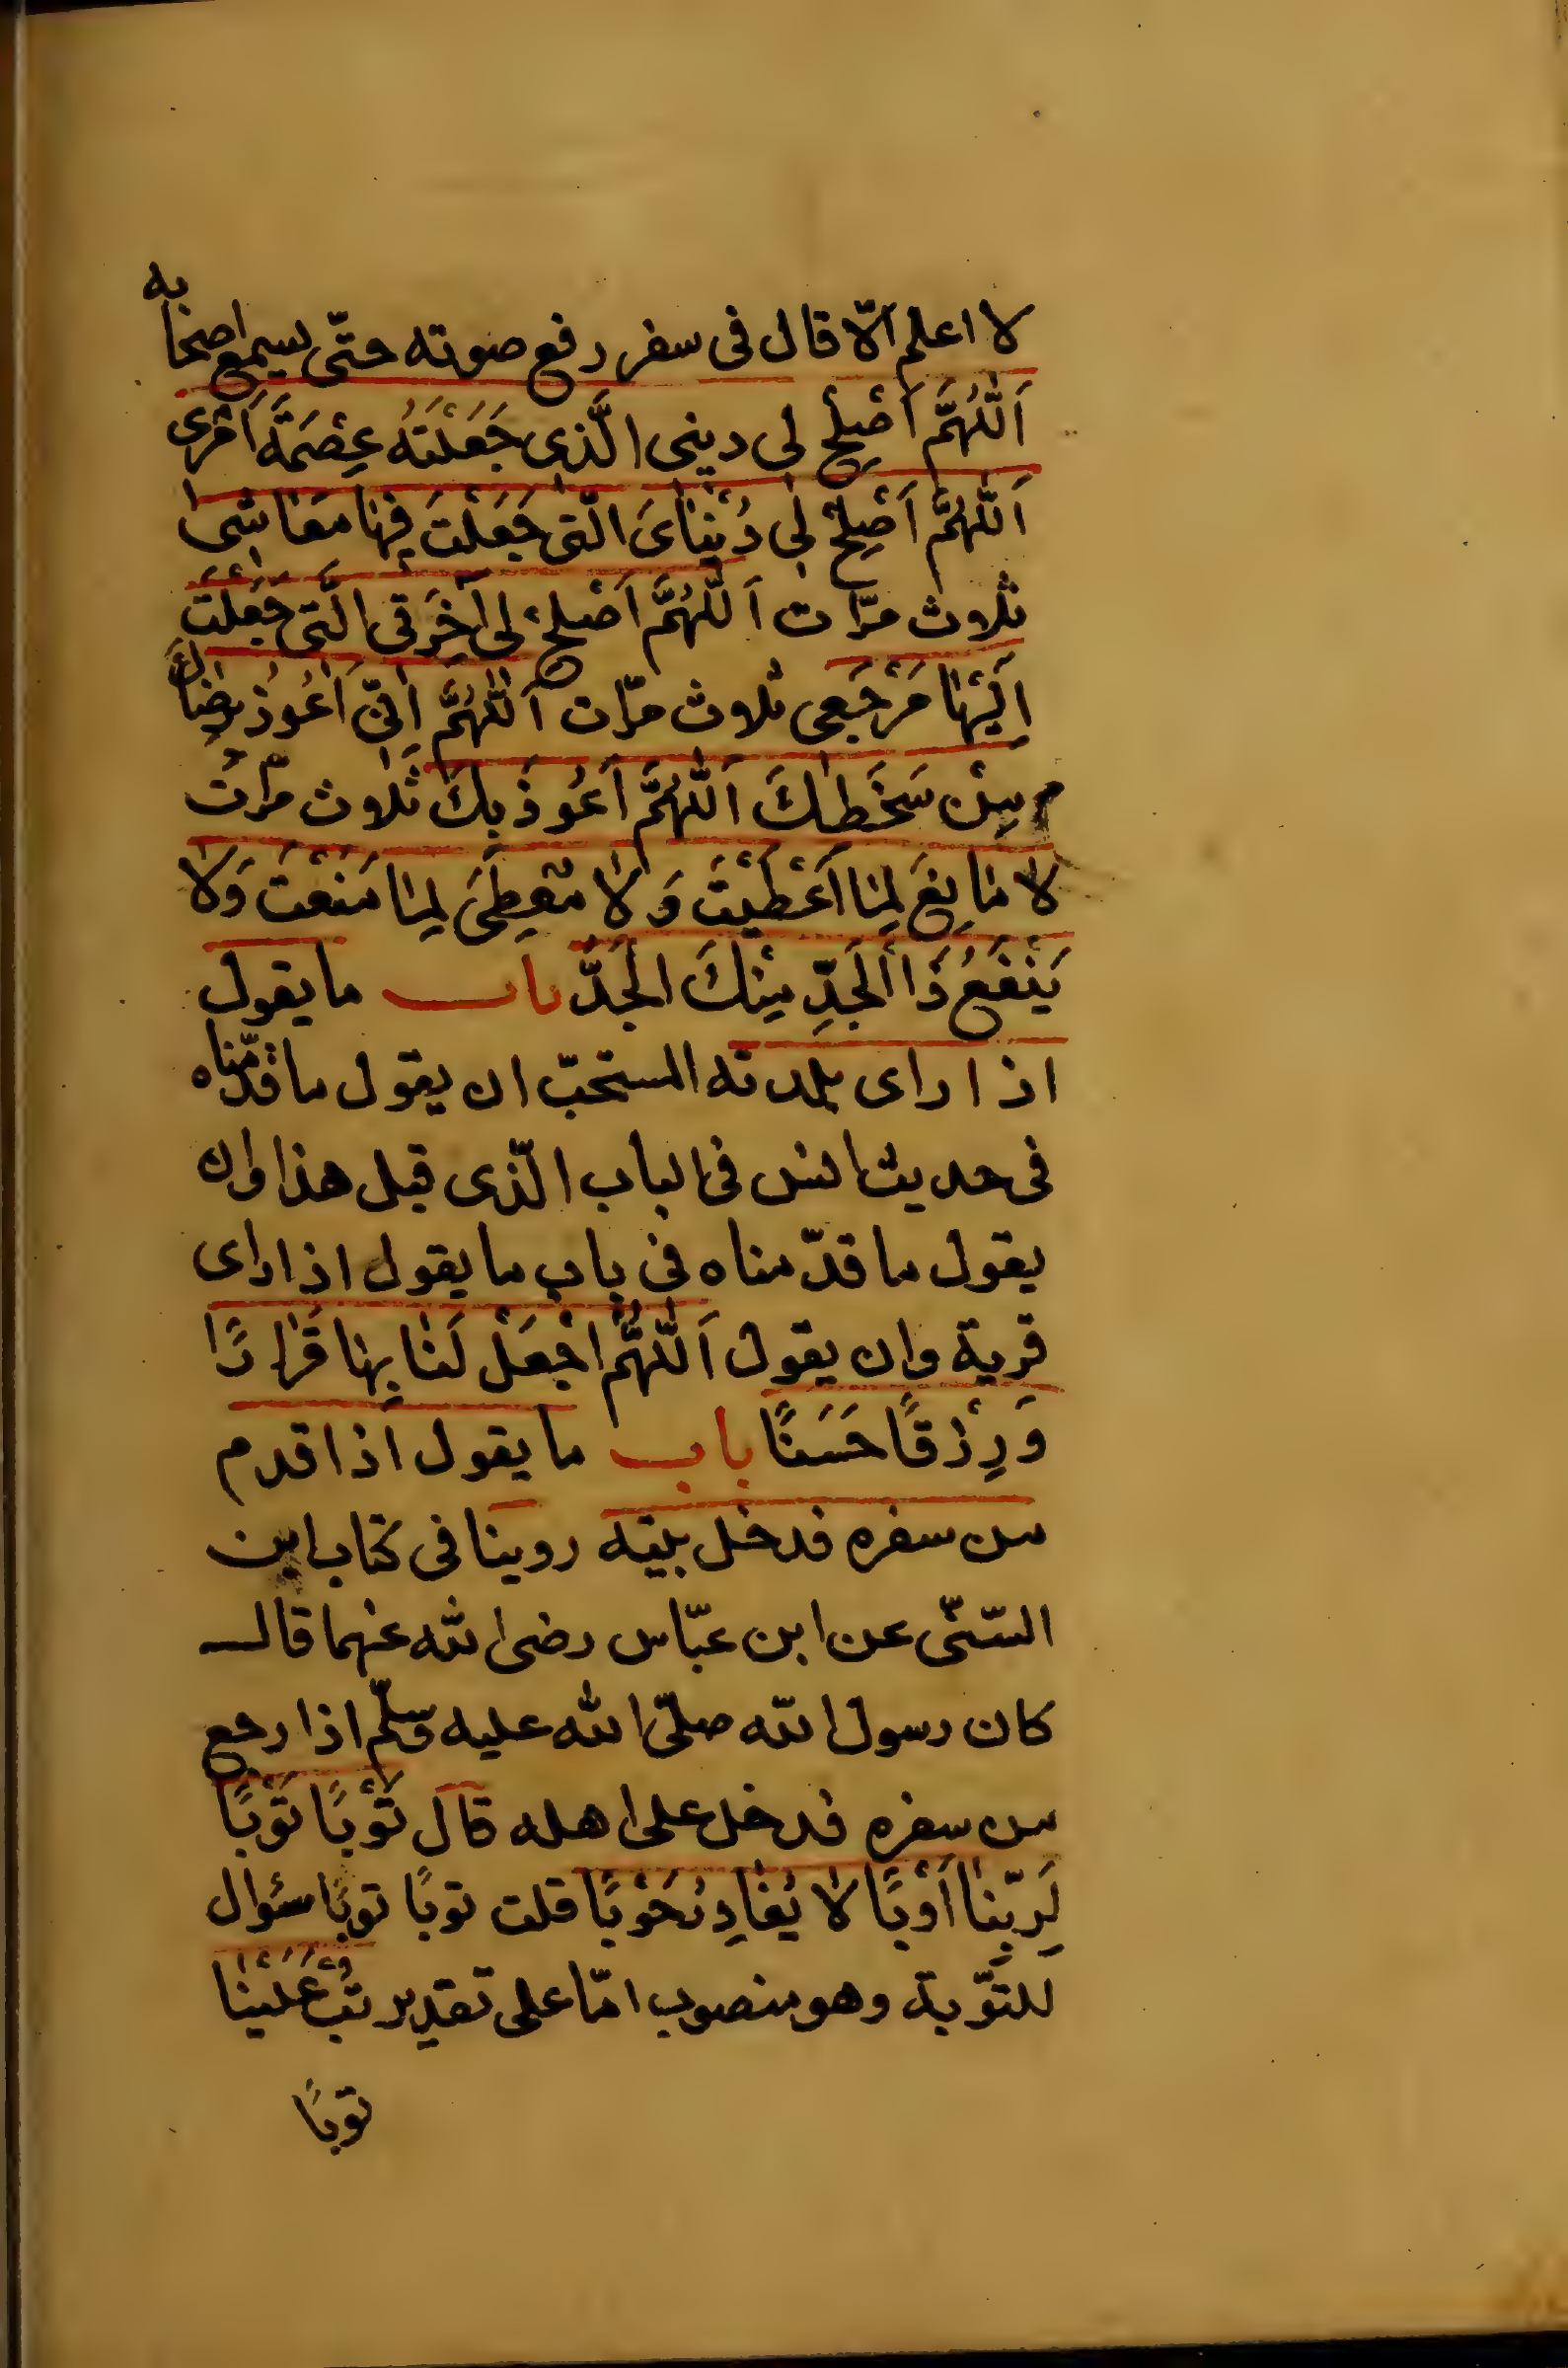 لا اعلم الّا قال فى سفر رفع صوته حتّى يسمع اصحابه
اَللّٰهُمَّ اَصْلِحْ لى دينى الَّذى جَعَلْتَهُ عِصْمَةَ اَمْرى
اَللّٰهُمَّ اَصْلِحْ لى دُنْيٰاىَ الَّتى جَعَلْتَ فيهٰا مَعٰاشى
ثلاوث مرّات اَللّٰهُمَّ اَصْلِحْ لى آخِرَتى الَّتى جَعَلْتَ
اِلَيْهٰا مَرْجَعى ثلاوث مرّات اَللّٰهُمَّ اِنّى اَعُوذُ بِرِضٰاكَ
مِنْ سَخَطِكَ اَللّٰهُمَّ اَعُوذُ بِكَ ثلاوث مرّات
لا مٰانِعَ لِمٰا اَعْطَيْتَ وَلا مُعْطِىَ لِمٰا مَنَعْتَ وَلا
يَنْفَعُ ذَا الْجَدِّ مِنْكَ الْجَدّ باب ما يقول
اذا راى بلدته المستحبّ ان يقول ما قدّمناه
فى حديث انس فى الباب الّذى قبل هذا وان
يقول ما قدّمناه فى باب ما يقول اذا راى
قرية وان يقول اَللّٰهُمَّ اجْعَلْ لَنٰا بِهٰا قَرٰارًا
وَرِزْقًا حَسَنًا باب ما يقول اذا قدم
من سفره فدخل بيته روينا فى كتاب ابن
السّنّى عن ابن عبّاس رضى الله عنهما قال
كان رسول الله صلّى الله عليه وسلّم اذا رجع
من سفره فدخل على اهله قال تَوْبًا تَوْبًا
لِرَبِّنٰا اَوْبًا لا يُغٰادِرُ حَوْبًا قلت توبًا توبًا سؤال
للتّوبة وهو منصوب امّا على تقدير تُبْ عَلَيْنٰا
توبًا